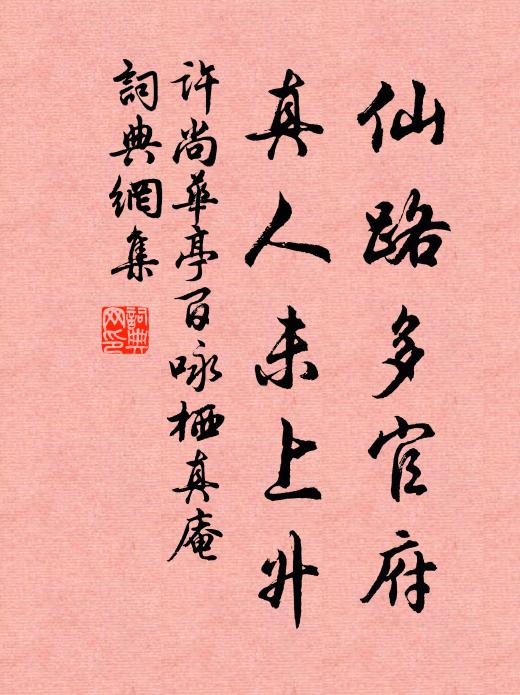 仙路多官府
真人未上升
许尚華亭百咏栖真庵
詞典網集
詞典網印